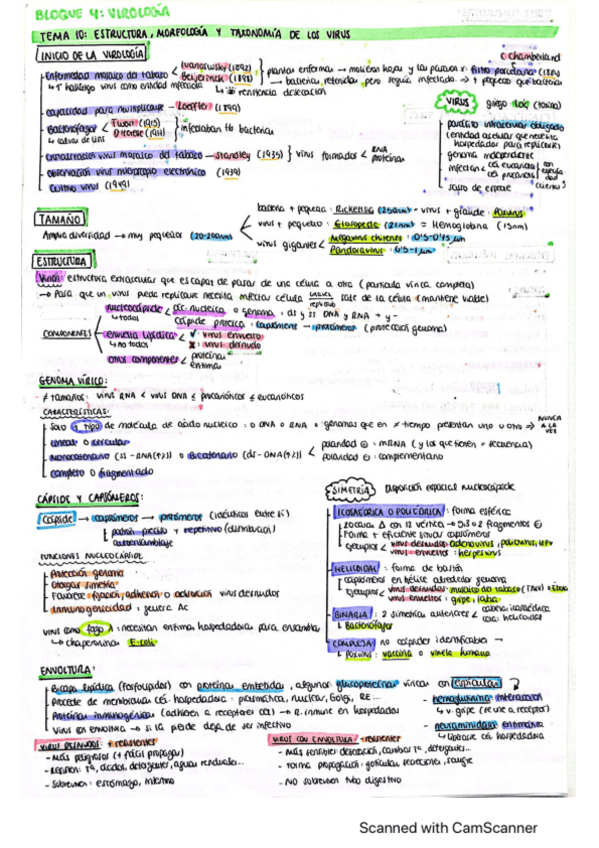 BLOQUE 4: VIROLOGÍA
TEMA 10: ESTRUCTURA, MORFOLOGÍA Y TAXONOMÍA DE LOS VIRUS
INICIO DE LA VIROLOGÍA
Enfermedad mosaico del tabaco
Ivanowsky (1892)
Beijerinck (1898)
plantas enfermas → molieron hojas y las pasaron x filtro porcelana (1884)
C. Chamberland
→ bacterias retenidas pero seguía infectando → + pequeño que bacterias
resistencia desecación
capacidad para multiplicarse - Loeffler
Bacteriófagos
Twort (1915)
D'Herelle (1917)
infectaban a bacterias
cristalización virus mosaico del tabaco → Standley (1935)
virus formados
RNA
proteínas
observación virus microscopio electrónico (1939)
Cultivo virus (1949)
VIRUS
griego
parásito intracelular obligado
(entidad acelular que necesita
hospedador para replicarse)
genoma independiente
infectan
cél eucariota
cél procariota
salto de especie
TAMAÑO
Amplia diversidad → muy pequeños (20-200nm)
bacteria + pequeña: Rickettsia (250nm) - virus + grande: Poxvirus
virus + pequeño: Circovirus (21nm) = Hemoglobina (15nm)
virus gigantes
Megavirus chilensis: 0'5-0'75 µm
Pandoravirus: 0'5-1 µm
ESTRUCTURA
Virión: estructura extracelular que es capaz de pasar de una célula a otra (partícula vírica completa)
→ Para que un virus pueda replicarse necesita infectar célula
sale de la célula (mantiene viable)
COMPONENTES
nucleocápside
↳ todos
ác. nucleico o genoma: ds y ss DNA y RNA + y -
Cápside proteica: capsómero → protómeros (protección genoma)
envuelta lipídica
↳ no todos
✓: virus envuelto
x: virus desnudo
otros componentes
proteína
enzima
GENOMA VÍRICO:
≠ tamaños: virus RNA < virus DNA ≤ procarióticos ≤ eucarióticos
CARACTERÍSTICAS:
Solo 1 tipo de molécula de ácido nucleico: o DNA o RNA o genomas que en ≠ tiempo presentan uno u otro → NUNCA A LA VEZ
Lineal o circular
Monocatenario (ss-RNA(+)) o Bicatenario (ds-DNA(+))
polaridad ⊕: mRNA (y los que tienen = secuencia)
polaridad ⊖: complementario
completo o fragmentado
CÁPSIDE Y CAPSÓMEROS:
Cápside → capsómeros → protómeros (idénticos entre sí)
patrón preciso y repetitivo (distribución)
autoensamblaje
FUNCIONES NUCLEOCÁPSIDE
Protección genoma
Otorgar simetría
Favorece fijación, adhesión o activación virus desnudos
Inmunogenicidad: genera Ac
virus como fago λ: necesitan enzima hospedadora para ensamblar
↳ chaperonina: E. coli
SIMETRÍA
Disposición espacial nucleocápside
ICOSAÉDRICA O POLIÉDRICA: forma esférica
20 caras Δ con 12 vértices → 5, 3 o 2 fragmentos
Forma + eficiente situar capsómeros
Ejemplos
virus desnudos: adenovirus, poliovirus, VPH
virus envueltos: herpesvirus
HELICOIDAL: forma de bastón
capsómeros en hélice alrededor genoma
Ejemplos
virus desnudos: mosaico del tabaco (TMV)
virus envueltos: gripe, rabia
BINARIA: 2 simetrías anteriores
cabeza: icosaédrica
cola: helicoidal
↳ Bacteriófago
COMPLEJA: no cápside identificable →
↳ Poxvirus: vaccinia o viruela humana
ENVOLTURA:
Bicapa lipídica (fosfolípidos) con proteínas embebidas, algunas glucoproteínas víricas con espículas
Procede de membranas cél. hospedadora: plasmática, nuclear, Golgi, RE...
Proteínas inmunogénicas (adhieren a receptores cél) → R. inmune en hospedador
Virus con envoltura → si la pierde deja de ser infectivo
hemaglutinina: interacción
↳ v. gripe (se une a receptor)
neuraminidasa: enzimática
↳ liberarse cél. hospedadora
VIRUS DESNUDOS: + resistentes
- Más peligrosos (+ fácil propagar)
- Resisten: Tª, ácidos, detergentes, aguas residuales...
- Sobreviven: estómago, intestino
VIRUS CON ENVOLTURA: - resistentes
- Más sensibles: desecación, cambios Tª, detergentes...
- Forma propagación: gotículas, secreciones, sangre
- NO sobreviven tubo digestivo
Scanned with CamScanner